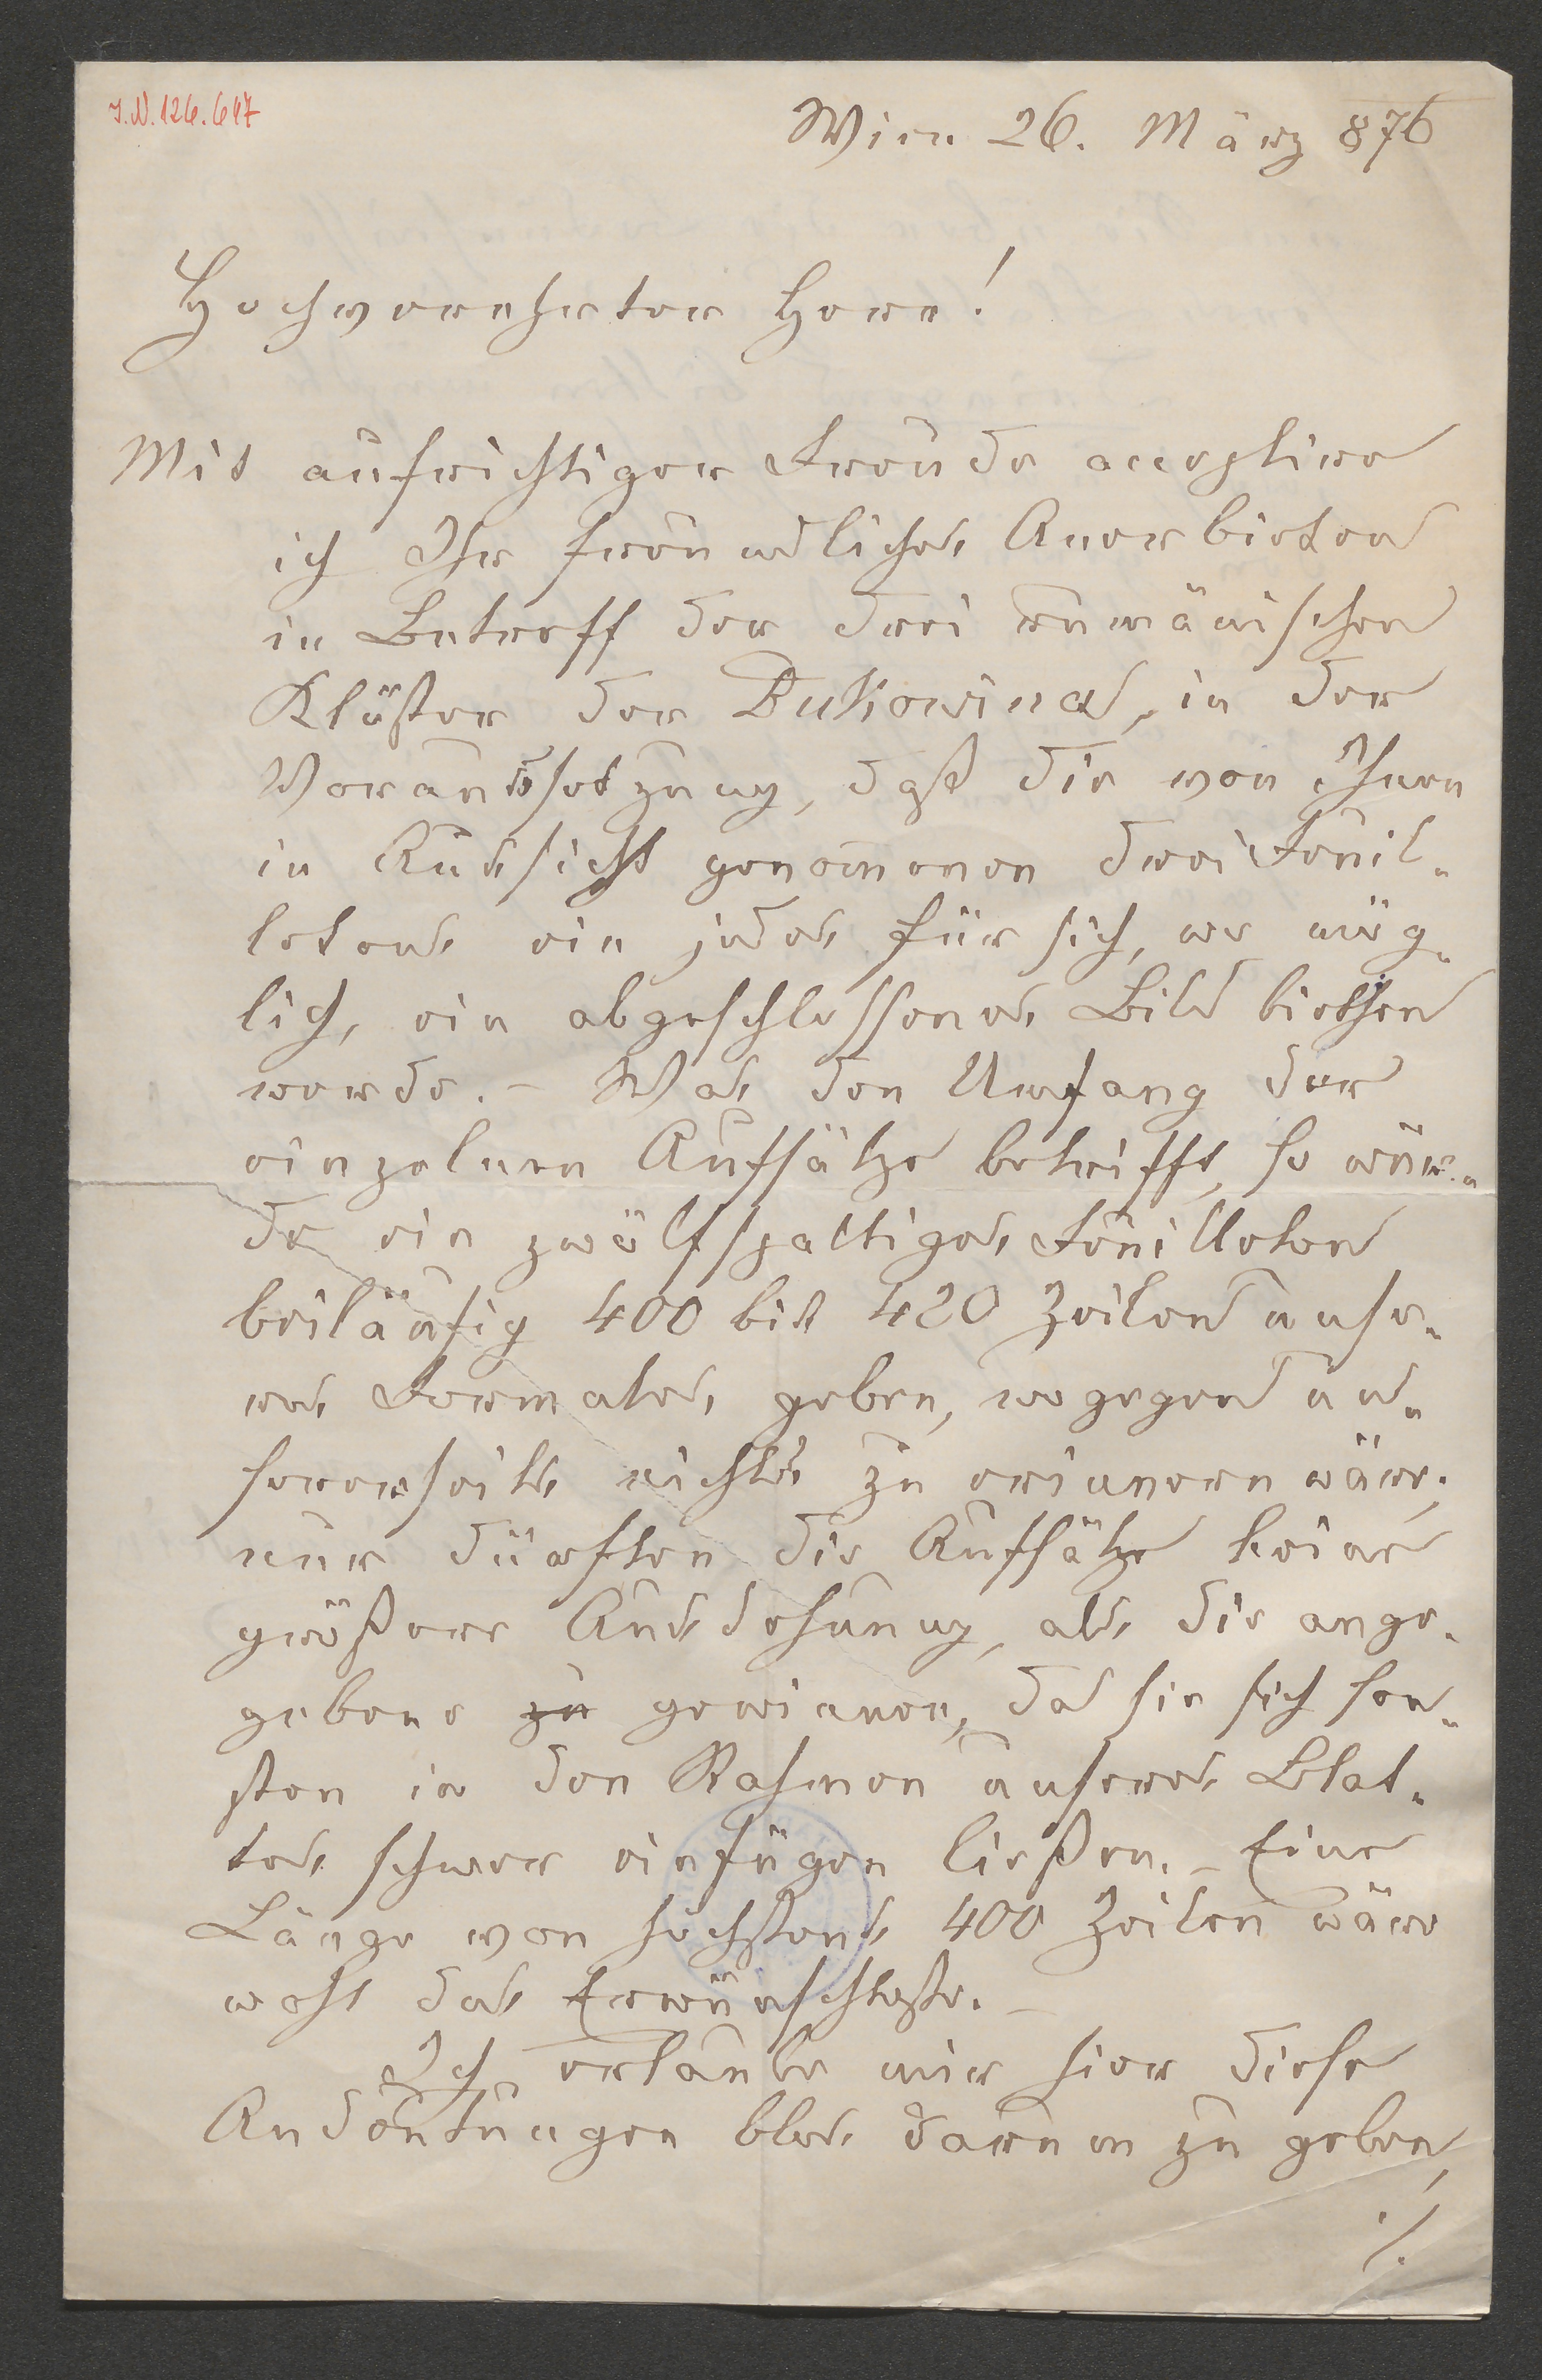 J.N. 126.647
Wien 26. März 876
Hochverehrter Herr!
Mit aufrichtiger Freude acceptire
ich Ihr freundliches Anerbieten
in Betreff der drei rumänischen
Klöster der Bukowina, in der
Voraussetzung, daß die von Ihnen
in Aussicht genommenen drei Feuil-
letons ein jedes für sich, wo mög-
lich, ein abgeschlossenes Bild biethen
werde. – Was den Umfang der
einzelnen Aufsätze betrifft, so wür-
de ein zwölfspaltiges Feuilleton
beiläufig 400 bis 420 Zeilen unse-
res Formates geben, wogegen un-
sererseits nichts zu erinnern wäre;
nur dürften die Aufsätze keine
größere Ausdehnung, als die ange-
gebene zu gewinnen, da sie sich son-
sten in den Rahmen unseres Blat-
tes schwer einfügen ließen. – Eine
Länge von höchstens 400 Zeilen wäre
wohl das Erwünschteste. –
Ich erlaube mir hier diese
Andeutungen blos darum zu geben,
./.